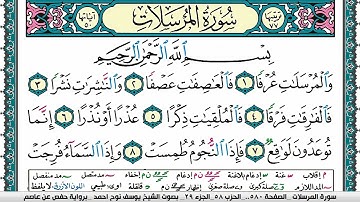 ترتيبها ٧٧ سُورَةُ المُرْسَلَات آياتها ٥٠
بِسْمِ اللَّهِ الرَّحْمَنِ الرَّحِيمِ
وَالْمُرْسَلَاتِ عُرْفًا ١ فَالْعَاصِفَاتِ عَصْفًا ٢ وَالنَّاشِرَاتِ نَشْرًا ٣
فَالْفَارِقَاتِ فَرْقًا ٤ فَالْمُلْقِيَاتِ ذِكْرًا ٥ عُذْرًا أَوْ نُذْرًا ٦ إِنَّمَا
تُوعَدُونَ لَوَاقِعٌ ٧ فَإِذَا النُّجُومُ طُمِسَتْ ٨ وَإِذَا السَّمَاءُ فُرِجَتْ
سورة المرسلات الصفحة ٥٨٠ الحزب ٥٨ الجزء ٢٩ بصوت الشيخ يوسف نوح احمد برواية حفص عن عاصم